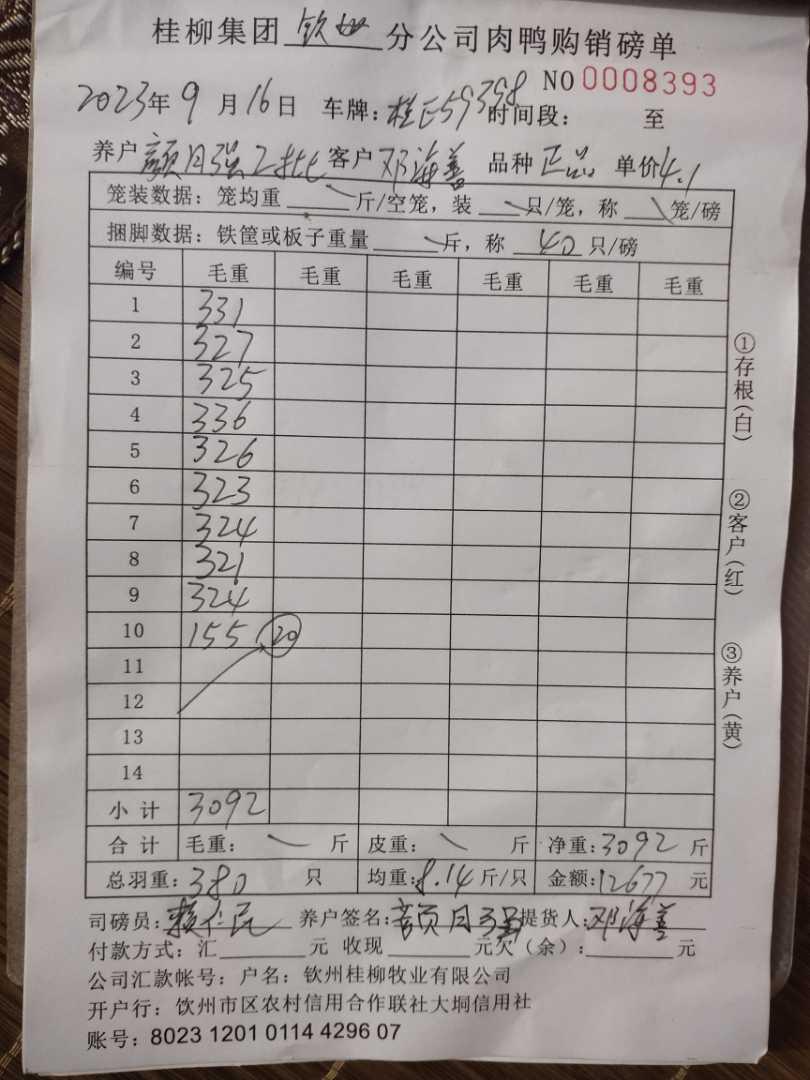 桂柳集团 钦州 分公司肉鸭购销磅单
NO 0008393
2023年 9 月 16 日 车牌: 59398 时间段: 至
养户 颜月强 客户 邓海善 品种 正品 单价 4.1
笼装数据: 笼均重 斤/空笼, 装 只/笼, 称 笼/磅
捆脚数据: 铁筐或板子重量 斤, 称 40 只/磅
编号 毛重 毛重 毛重 毛重 毛重 毛重
1 331
2 327
3 325
4 336
5 326
6 323
7 324
8 321
9 324
10 155 20
11
12
13
14
小 计 3092
合 计 毛重: 斤 皮重: 斤 净重: 3092 斤
总羽重: 380 只 均重: 8.14 斤/只 金额: 12677 元
司磅员: 养户签名: 颜月强 提货人: 邓海善
付款方式: 汇 元 收现 元欠(余): 元
公司汇款帐号: 户名: 钦州桂柳牧业有限公司
开户行: 饮州市区农村信用合作联社大垌信用社
账号: 8023 1201 0114 4296 07
①存根(白)
②客户(红)
③养户(黄)